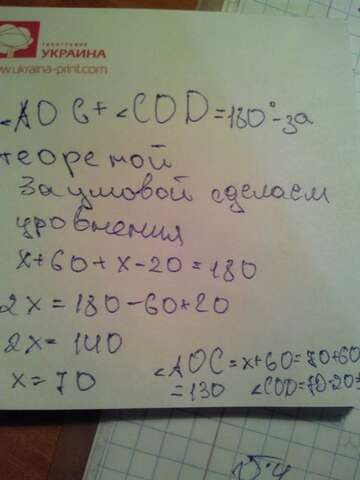 УКРАИНА
www.ukraina-print.com
∠AOC+∠COD=180°-за
теоремой
За умовой сделаем
уровнения
x+60+x-20=180
2x=180-60+20
2x=140
x=70
∠AOC=x+60=70+60
=130 ∠COD=70-20=